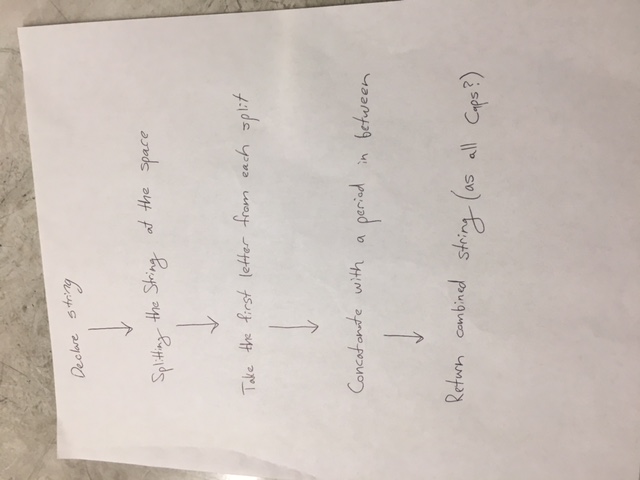 Declare string
Splitting the String at the space
Take the first letter from each split
Concatonate with a period in between
Return combined string (as all Caps?)